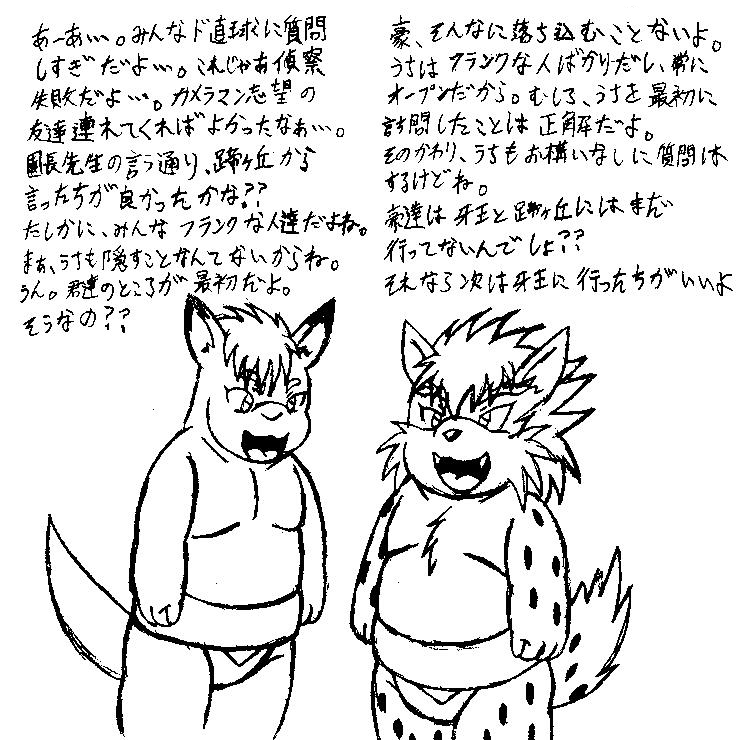 あーあ…。みんなド直球に質問
しすぎだよ…。これじゃあ偵察
失敗だよ…。カメラマン志望の
友達連れてくればよかったなぁ…。
園長先生の言う通り、蹄ヶ丘から
言ったちが良かったかな??
たしかに、みんなフランクな人達だよね。
まぁ、うちも隠すことなんてないからね。
うん。君達のところが最初だよ。
そうなの??
豪、そんなに落ち込むことないよ。
うちはフランクな人ばかりだし、常に
オープンだから。むしろ、うちを最初に
訪問したことは正解だよ。
そのかわり、うちもお構いなしに質問は
するけどね。
豪達は牙王と蹄ヶ丘にはまだ
行ってないんでしょ??
それなら次は牙王に行ったちがいいよ